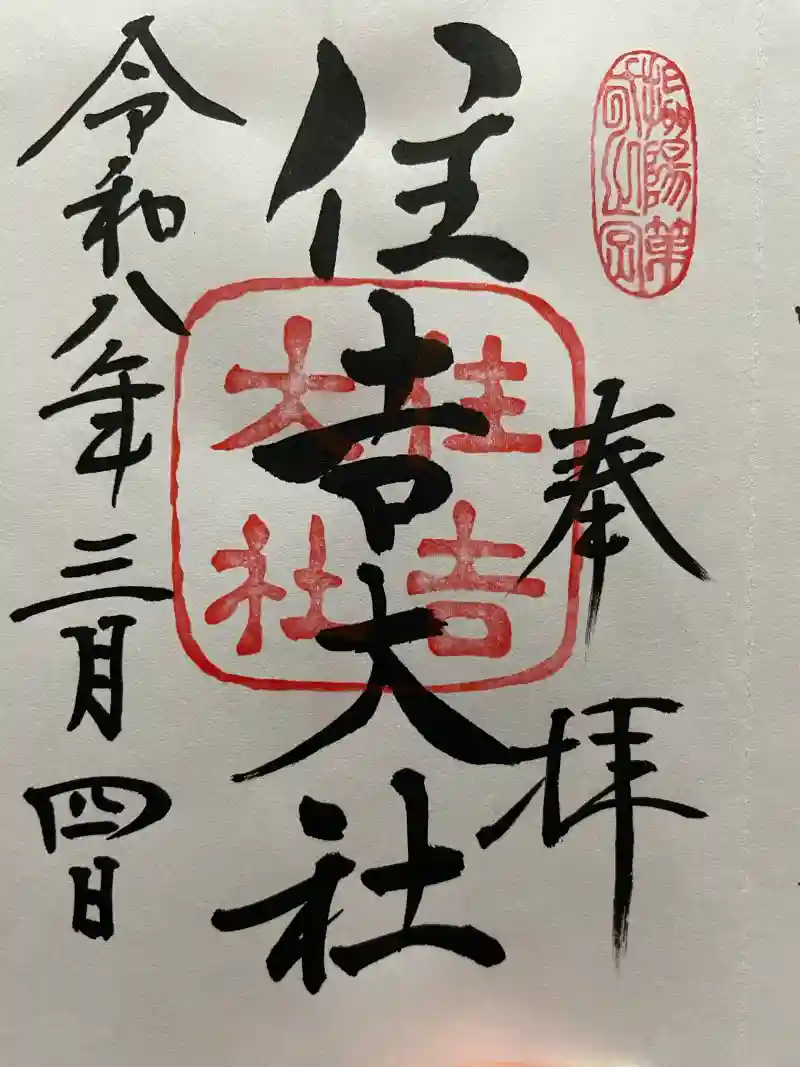 攝陽第
奉拝
住吉大社
住吉
大社
令和八年三月四日